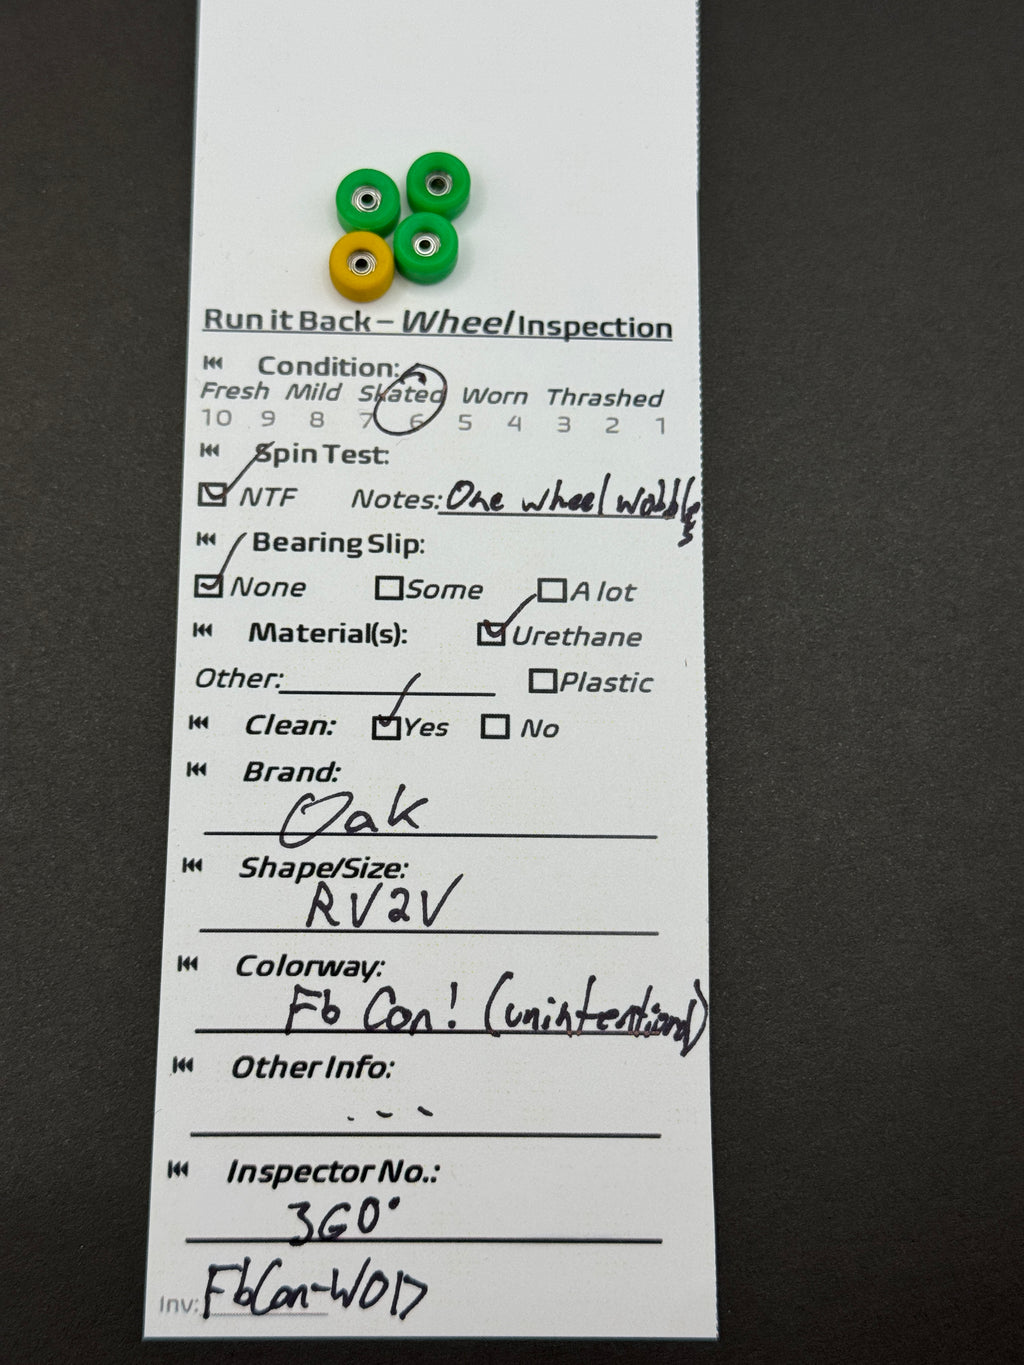 Run it Back – Wheel Inspection
Condition:
Fresh Mild Skated Worn Thrashed
10 9 8 7 6 5 4 3 2 1
Spin Test:
NTF Notes: One wheel wobbles
Bearing Slip:
None Some A lot
Material(s): Urethane
Other: Plastic
Clean: Yes No
Brand:
Oak
Shape/Size:
RV2V
Colorway:
Fb Con! (unintentional)
Other Info:
---
Inspector No.:
360°
Inv: FbCon-WO17